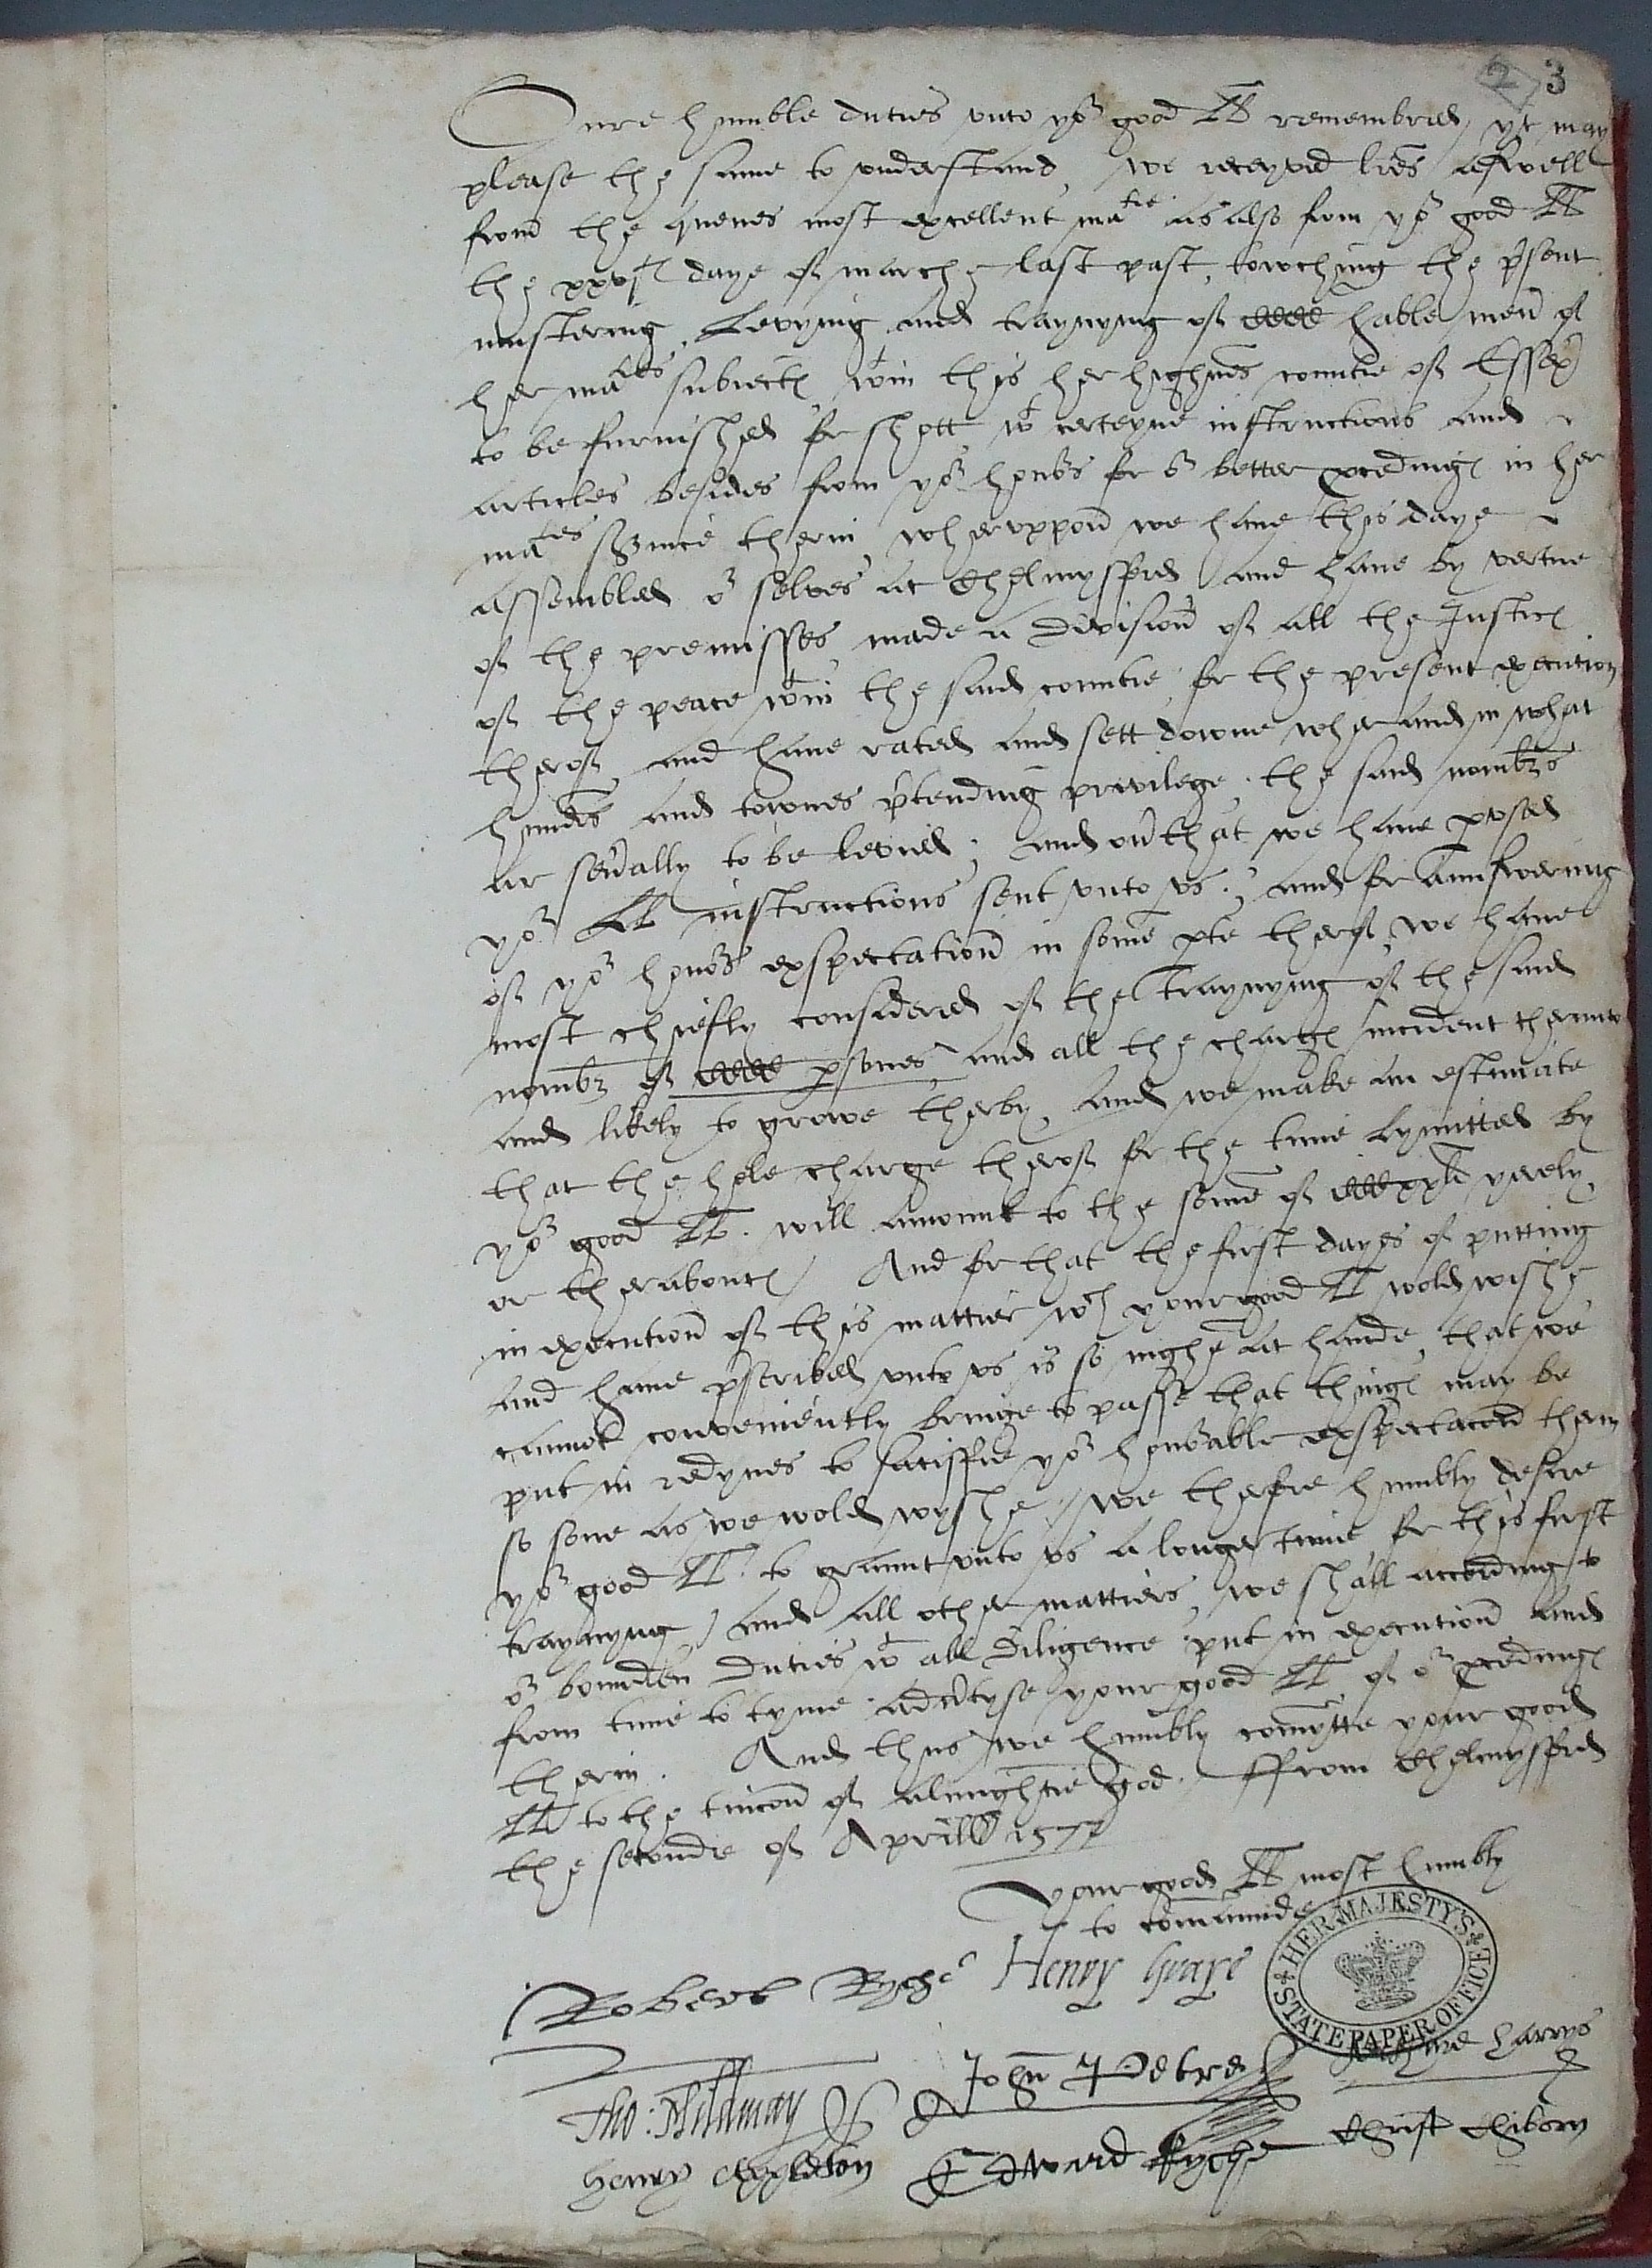 2 3
Oure humble duties vnto yor good LL remembred, yt may
please the same to vnderstand, we receyved lres aswell
from the quenes most excellent matie as also from yor good LL
the xxvjth daye of marche last past, towching the psent
mustering, Levying and traynyng of hable men of
her maties subiectes wthin this her highnes countie of Essex
to be furnished for shott, wt certeyne instructions and
articles besides from yor honors for or better pcedinges in her
maties svice therin, whervppon we haue this daye
assembled or selves at Chelmysford and haue by vertue
of the premisses made a Division of all the Justices
of the peace wthin the said countie for the present execution
therof, and haue rated and sett downe wher and in what
hundrs and townes ptending privilege, the said nombrs
ar seually to be levied; and on that we haue pvsed
yor LL instructions sent vnto vs; and for annswering
of yor honors expectation in some pte therof, we haue
most chiefly considered of the traynyng of the said
nombr of psones, and all the charges incident thervnto
and likely to growe therby, and we make an estimate
that the hole charge therof for the time lymitted by
yor good LL. will amount to the some of yerely,
or theraboutes / And for that the first dayes of putting
in execution of this mattier wch your good LL wold wishe
and haue pscribed vnto vs is so nighe at hande, that we
cannot conveniently bringe to passe that thinges may be
put in redynes to satisfie yor honorable expectacon therin
so sone as we wold wyshe / we therfore humbly desire
yor good LL to graunt vnto vs a longer time for this first
traynyng, and all other mattiers, we shall according to
or bounden Duties wt all Diligence put in execution and
from time to tyme aduertyse your good LL of or pcedinges
therin. And thus we humbly comytte your good
LL to the tuicon of almightie god. ffrom Chelmysford
the seconde of Aprill 1577
Your good LL most humbly
to comaunde
Robert Ryche Henry Graye
HER MAJESTY'S STATE PAPER OFFICE
John Petre Harrys
Tho: Mildmay
Henry Appleton Edward Ryche Christ Chibory